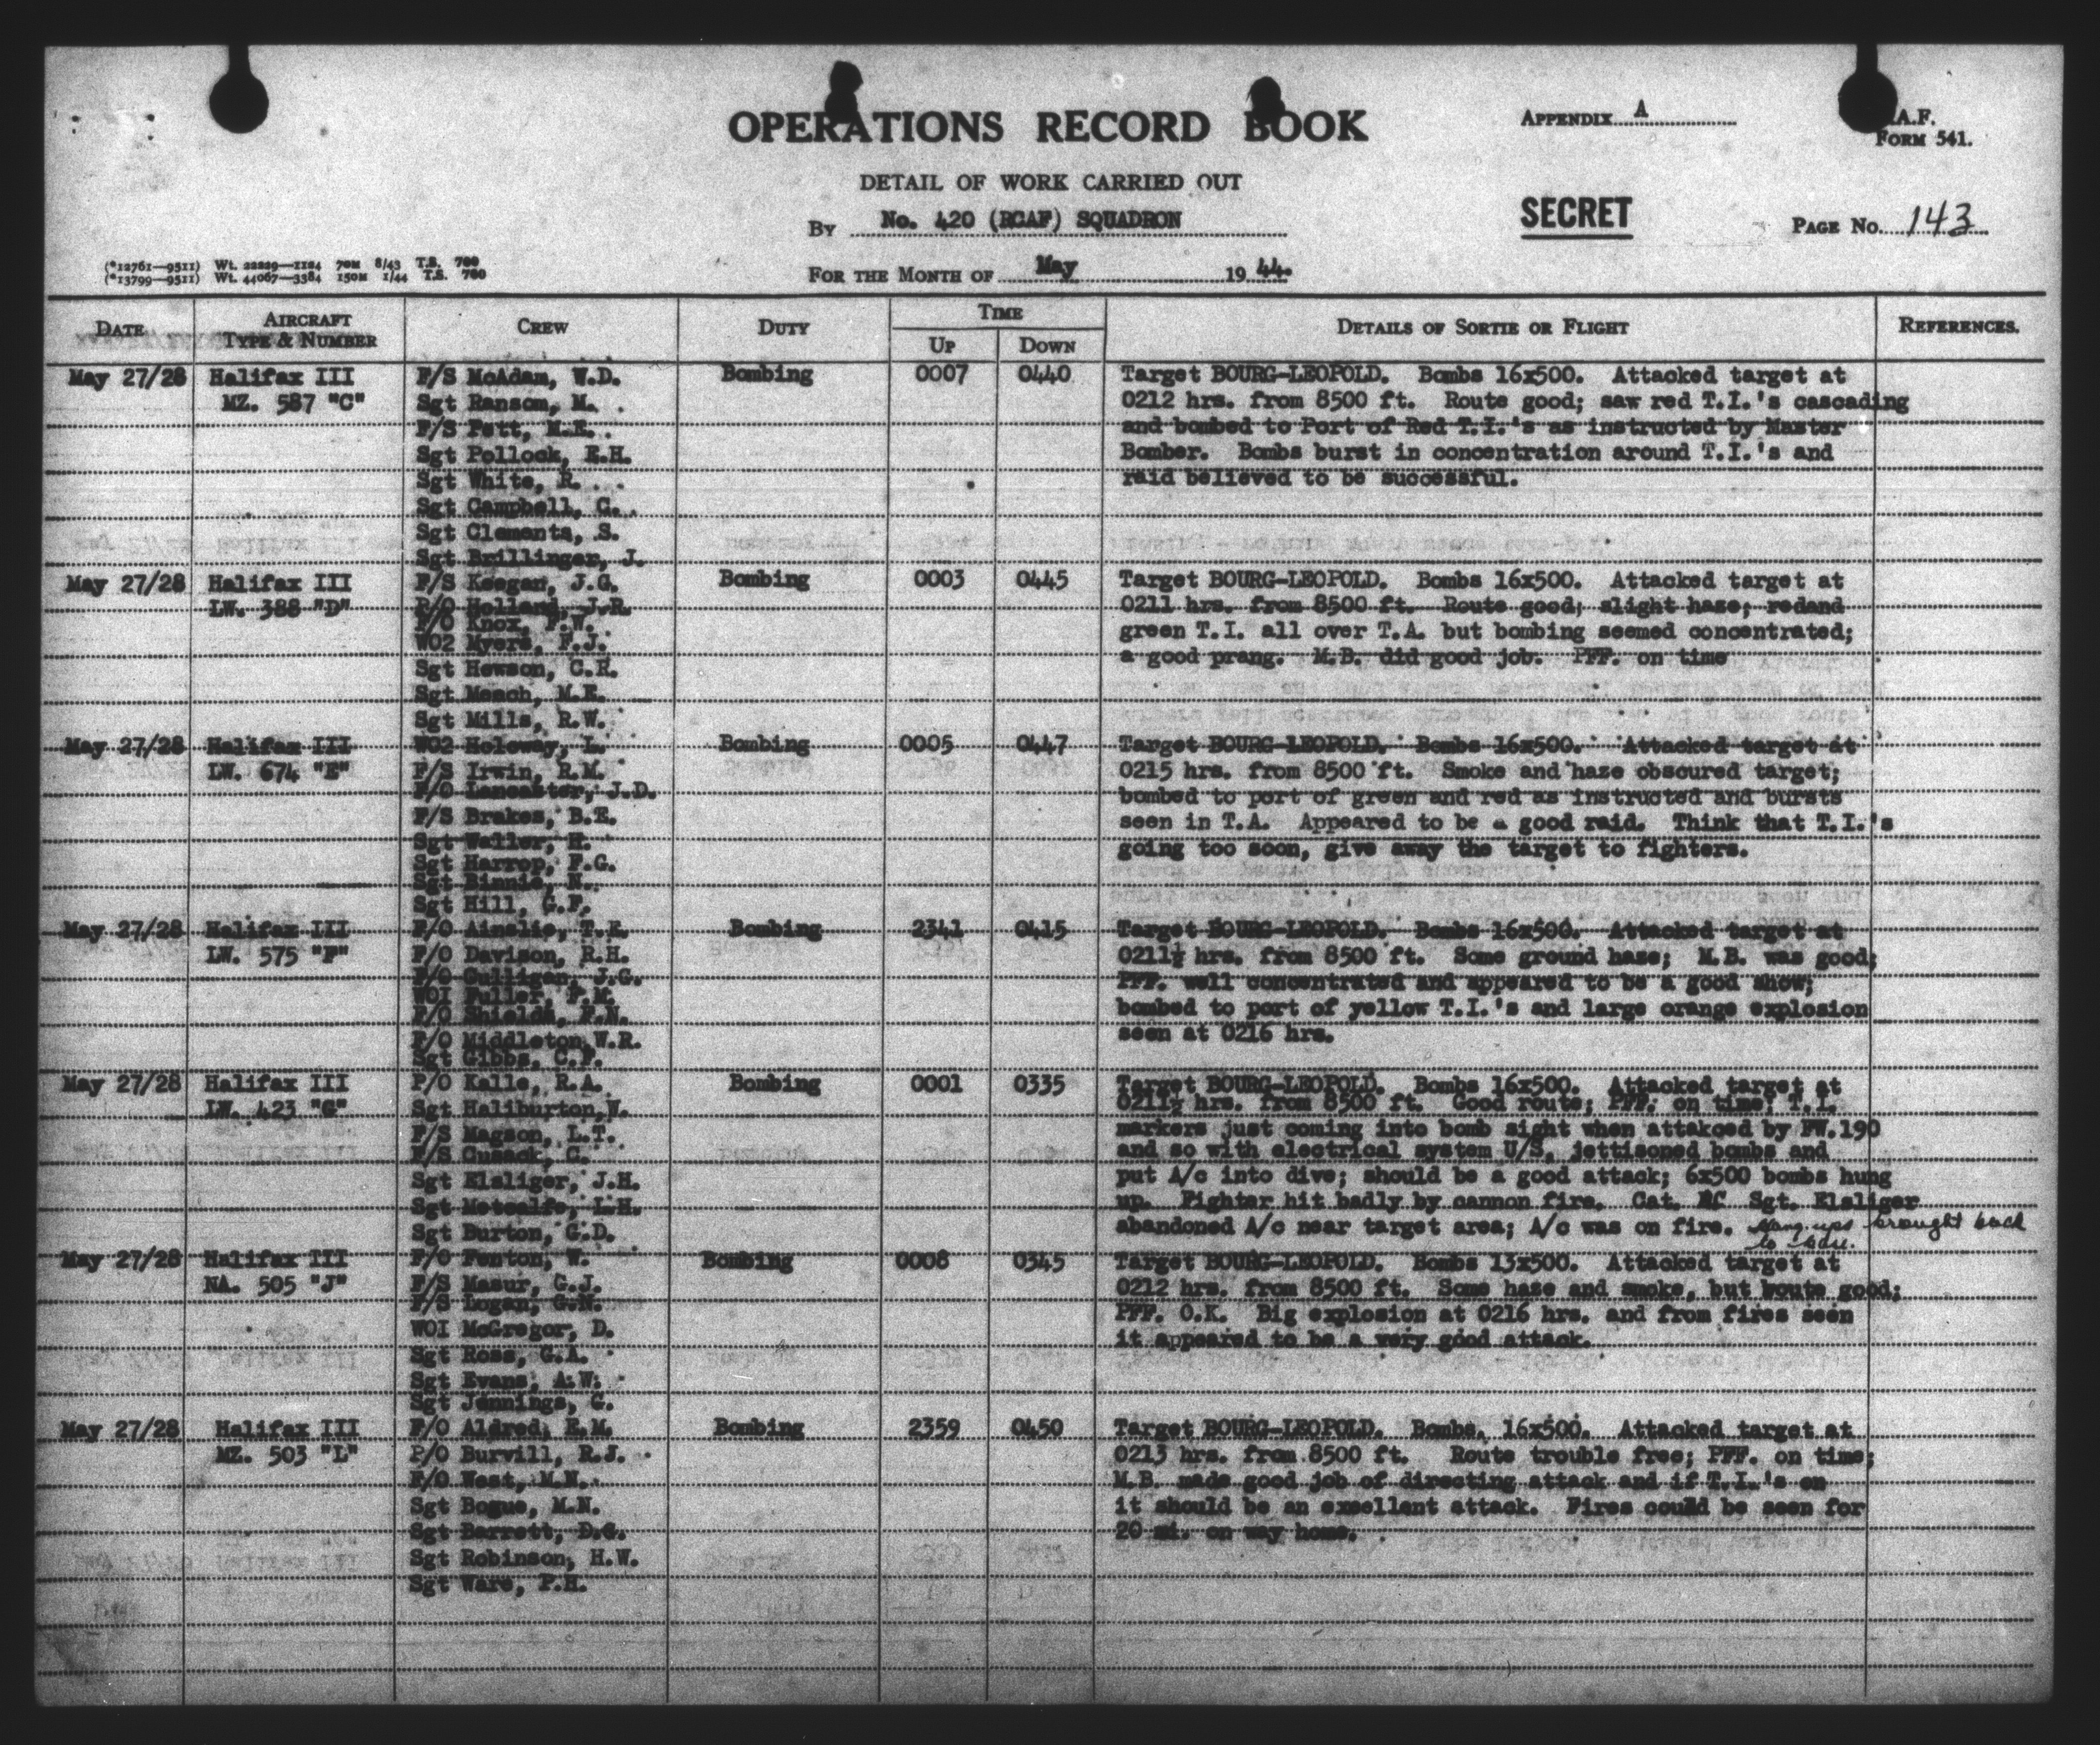 OPERATIONS RECORD BOOK
APPENDIX A
R.A.F.
FORM 541.
DETAIL OF WORK CARRIED OUT
By No. 420 (RCAF) SQUADRON
SECRET
PAGE No. 143
(*12761—9511) Wt. 22229—1124 70M 8/43 T.S. 700
(*13799—9511) Wt. 44067—3384 150M 1/44 T.S. 700
FOR THE MONTH OF May 1944.
DATE AIRCRAFT TYPE & NUMBER CREW DUTY TIME UP DOWN DETAILS OF SORTIE OR FLIGHT REFERENCES.
May 27/28 Halifax III F/S McAdam, W.D. Bombing 0007 0440 Target BOURG-LEOPOLD. Bombs 16x500. Attacked target at
MZ. 587 "C" Sgt Ransom, M. 0212 hrs. from 8500 ft. Route good; saw red T.I.'s cascading
F/S Fett, M.E. and bombed to Port of Red T.I.'s as instructed by Master
Sgt Pollock, E.H. Bomber. Bombs burst in concentration around T.I.'s and
Sgt White, R. raid believed to be successful.
Sgt Campbell, C.
Sgt Clements, S.
Sgt Brillinger, J.
May 27/28 Halifax III F/S Keegan, J.G. Bombing 0003 0445 Target BOURG-LEOPOLD. Bombs 16x500. Attacked target at
LW. 388 "D" P/O Holland, J.R. 0211 hrs. from 8500 ft. Route good; slight haze; redand
F/O Knox, F.W. green T.I. all over T.A. but bombing seemed concentrated;
WO2 Myers, F.J. a good prang. M.B. did good job. PFF. on time
Sgt Hewson, C.R.
Sgt Meach, M.E.
Sgt Mills, R.W.
May 27/28 Halifax III WO2 Holoway, L. Bombing 0005 0447 Target BOURG-LEOPOLD. Bombs 16x500. Attacked target at
LW. 674 "E" F/S Irwin, R.M. 0215 hrs. from 8500 ft. Smoke and haze obscured target;
F/O Lancaster, J.D. bombed to port of green and red as instructed and bursts
F/S Brakes, B.E. seen in T.A. Appeared to be a good raid. Think that T.I.'s
Sgt Waller, H. going too soon, give away the target to fighters.
Sgt Harrop, F.G.
Sgt Binnie, N.
Sgt Hill, G.F.
May 27/28 Halifax III F/O Ainslie, T.E. Bombing 2341 0415 Target BOURG-LEOPOLD. Bombs 16x500. Attacked target at
LW. 575 "F" F/O Davison, R.H. 0211½ hrs. from 8500 ft. Some ground haze; M.B. was good;
F/O Culligan, J.G. PFF. well concentrated and appeared to be a good show;
WOI Fuller, F.M. bombed to port of yellow T.I.'s and large orange explosion
F/O Shields, F.N. seen at 0216 hrs.
F/O Middleton, W.R.
Sgt Gibbs, C.F.
May 27/28 Halifax III P/O Kalle, R.A. Bombing 0001 0335 Target BOURG-LEOPOLD. Bombs 16x500. Attacked target at
LW. 423 "G" Sgt Haliburton, W. 0211½ hrs. from 8500 ft. Good route; PFF. on time; T.I.
F/S Magson, L.T. markers just coming into bomb sight when attakced by FW.190
F/S Cusack, C. and so with electrical system U/S, jettisoned bombs and
Sgt Elsliger, J.H. put A/c into dive; should be a good attack; 6x500 bombs hung
Sgt Metcalfe, L.H. up. Fighter hit badly by cannon fire. Cat. AC Sgt. Elsliger
Sgt Burton, G.D. abandoned A/c near target area; A/c was on fire. Hang ups brought back
to base.
May 27/28 Halifax III F/O Fenton, W. Bombing 0008 0345 Target BOURG-LEOPOLD. Bombs 13x500. Attacked target at
NA. 505 "J" F/S Masur, G.J. 0212 hrs. from 8500 ft. Some haze and smoke, but route good;
F/S Logan, G.N. PFF. O.K. Big explosion at 0216 hrs. and from fires seen
WOI McGregor, D. it appeared to be a very good attack.
Sgt Ross, G.A.
Sgt Evans, A.W.
Sgt Jennings, G.
May 27/28 Halifax III F/O Aldred, E.M. Bombing 2359 0450 Target BOURG-LEOPOLD. Bombs. 16x500. Attacked target at
MZ. 503 "L" P/O Burvill, R.J. 0213 hrs. from 8500 ft. Route trouble free; PFF. on time;
F/O West, M.N. M.B. made good job of directing attack and if T.I.'s on
Sgt Bogue, M.N. it should be an excellent attack. Fires could be seen for
Sgt Barrett, D.G. 20 mi. on way home.
Sgt Robinson, H.W.
Sgt Ware, P.H.